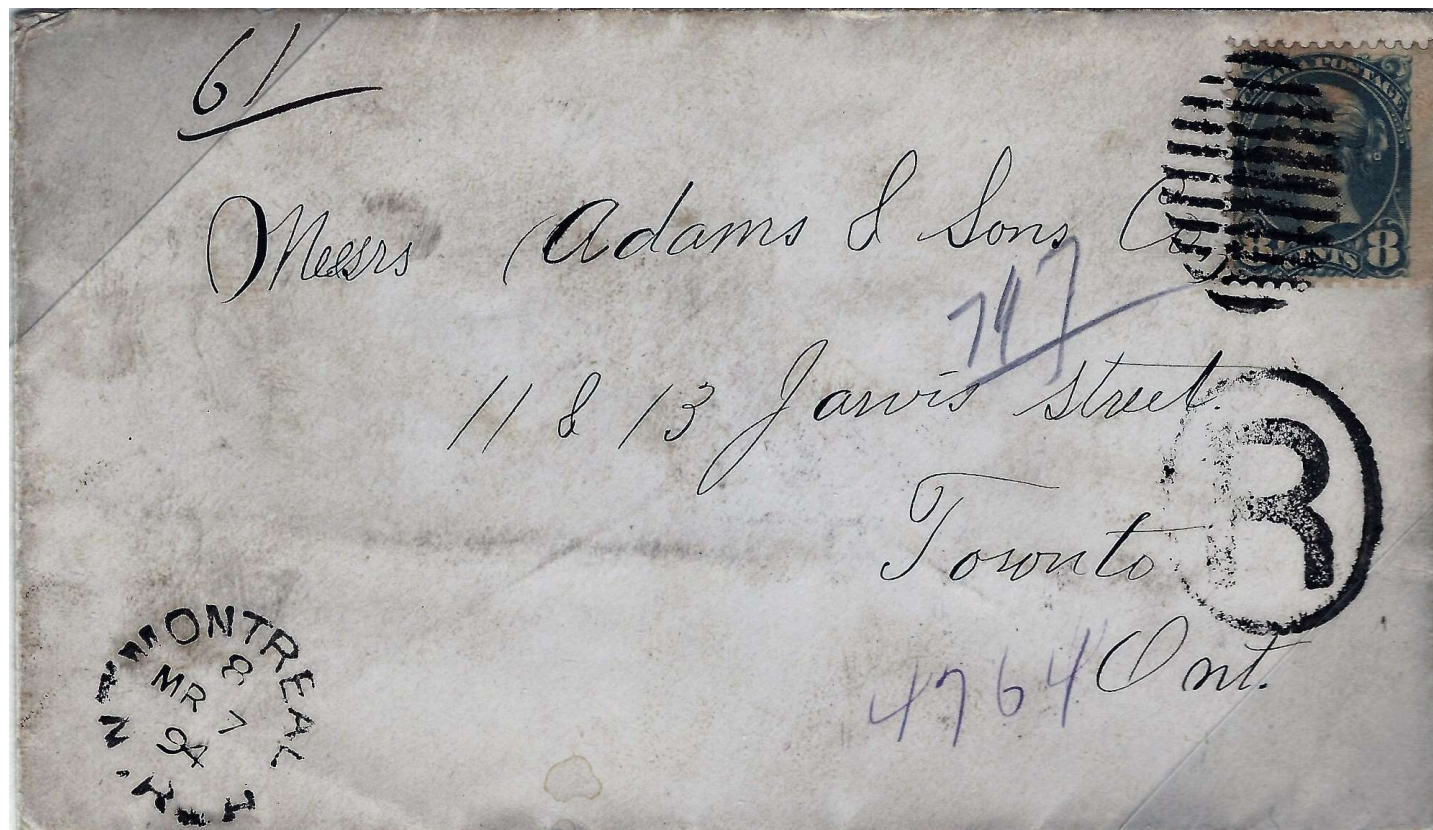 61
CANADA POSTAGE
8 CENTS 8
Messrs Adams & Sons Co
747
11 & 13 Jarvis Street.
R
Toronto
Ont.
4764
MONTREAL
8
MR 7
94